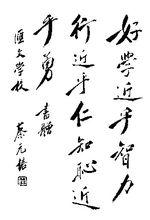 好學近乎智力
行近乎仁知恥近
乎勇
匯文學校
蔡元培